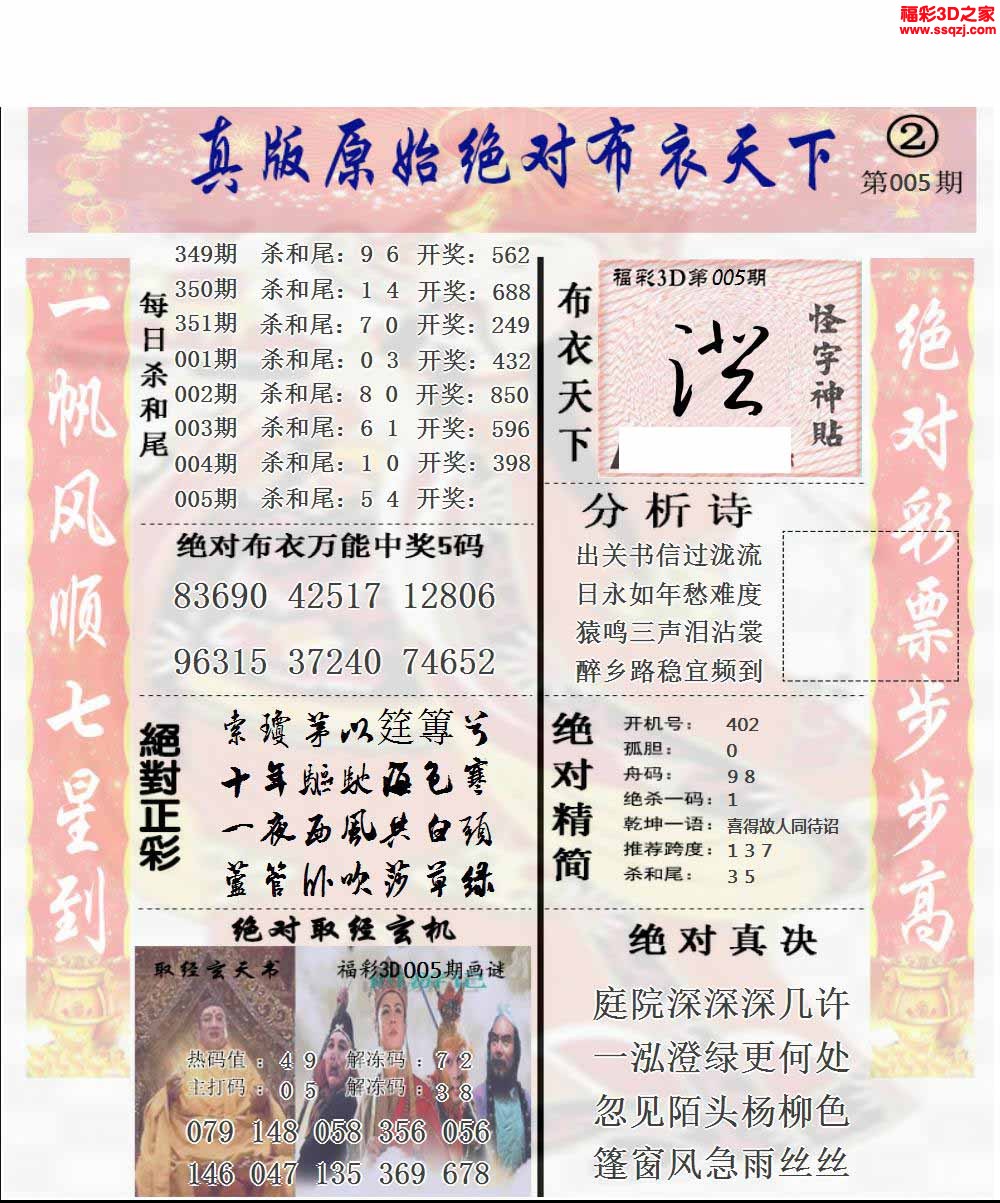 福彩3D之家
www.ssqzj.com
真版原始绝对布衣天下
②
第005期
一帆风顺七星到
每日杀和尾
349期 杀和尾：9 6 开奖：562
350期 杀和尾：1 4 开奖：688
351期 杀和尾：7 0 开奖：249
001期 杀和尾：0 3 开奖：432
002期 杀和尾：8 0 开奖：850
003期 杀和尾：6 1 开奖：596
004期 杀和尾：1 0 开奖：398
005期 杀和尾：5 4 开奖：
绝对布衣万能中奖5码
83690 42517 12806
96315 37240 74652
絕對正彩
索瓊茅以筳篿兮
十年驅馳海色寒
一夜西風共白頭
蘆管卧吹莎草绿
绝对取经玄机
取经玄天书
福彩3D005期画谜
热码值：4 9 解冻码：7 2
主打码：0 5 解冻码：3 8
079 148 058 356 056
146 047 135 369 678
布衣天下
福彩3D第005期
怪字神貼
分析诗
出关书信过泷流
日永如年愁难度
猿鸣三声泪沾裳
醉乡路稳宜频到
绝对精简
开机号： 402
孤胆： 0
舟码： 9 8
绝杀一码：1
乾坤一语：喜得故人同待诏
推荐跨度：1 3 7
杀和尾： 3 5
绝对真决
庭院深深深几许
一泓澄绿更何处
忽见陌头杨柳色
篷窗风急雨丝丝
绝对彩票步步高